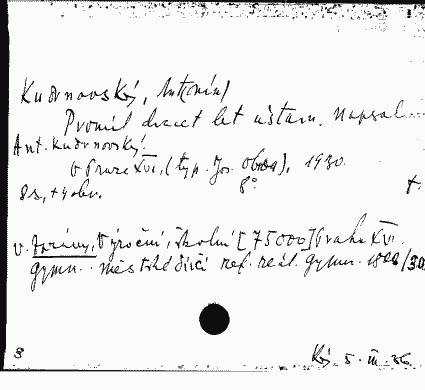 Kudrnovský, Antonín
Prvních dvacet let ústavu. Napsal...
Ant. Kudrnovský.
V Praze XVI, (typ. Jos. ), 1930.
8 s, +4 obr. 8° +.
v. Zprávy, Výroční, školní [75000] Praha XVI.
gymn. městské dívčí ref. reál. gymn. /30
8 5. III. 36